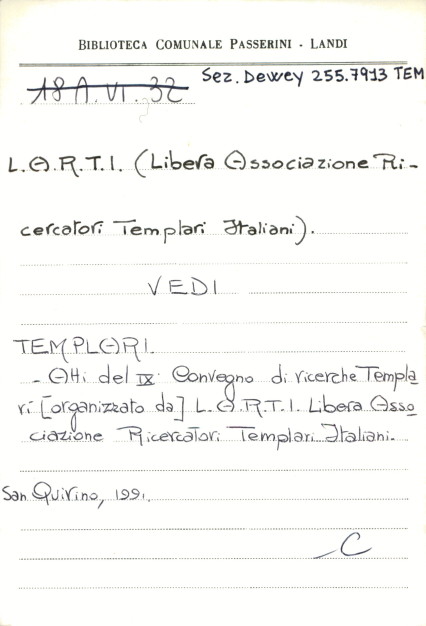 BIBLIOTECA COMUNALE PASSERINI - LANDI
18 A. VI. 32 Sez. Dewey 255.7913 TEM
L.A.R.T.I. (Libera Associazione Ri-
cercatori Templari Italiani).
VEDI
TEMPLARI.
- Atti del IX Convegno di ricerche Templa
ri [organizzato da] L.A.R.T.I. Libera Asso
ciazione Ricercatori Templari Italiani.
San Quirino, 1991.
C